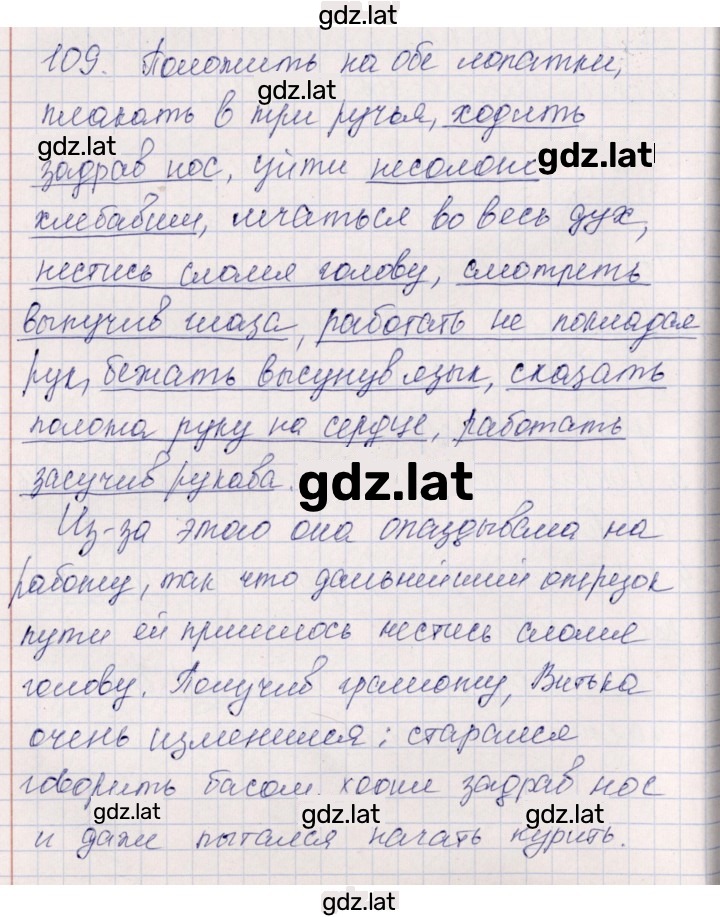 gdz.lat
109. Положить на обе лопатки,
gdz.lat
плакать в три ручья, ходить
gdz.lat
задрав нос, уйти несолоно
gdz.lat
хлебавши, мчаться во весь дух,
нестись сломя голову, смотреть
выпучив глаза, работать не покладая
рук, бежать высунув язык, сказать
положа руку на сердце, работать
засучив рукава.
gdz.lat
Из-за этого она опаздывала на
работу, так что дальнейший отрезок
пути ей пришлось нестись сломя
голову. Получив грамоту, Витька
очень изменился: старался
говорить басом, ходил задрав нос
gdz.lat
gdz.lat
gdz.lat
и даже пытался начать курить.
gdz.lat